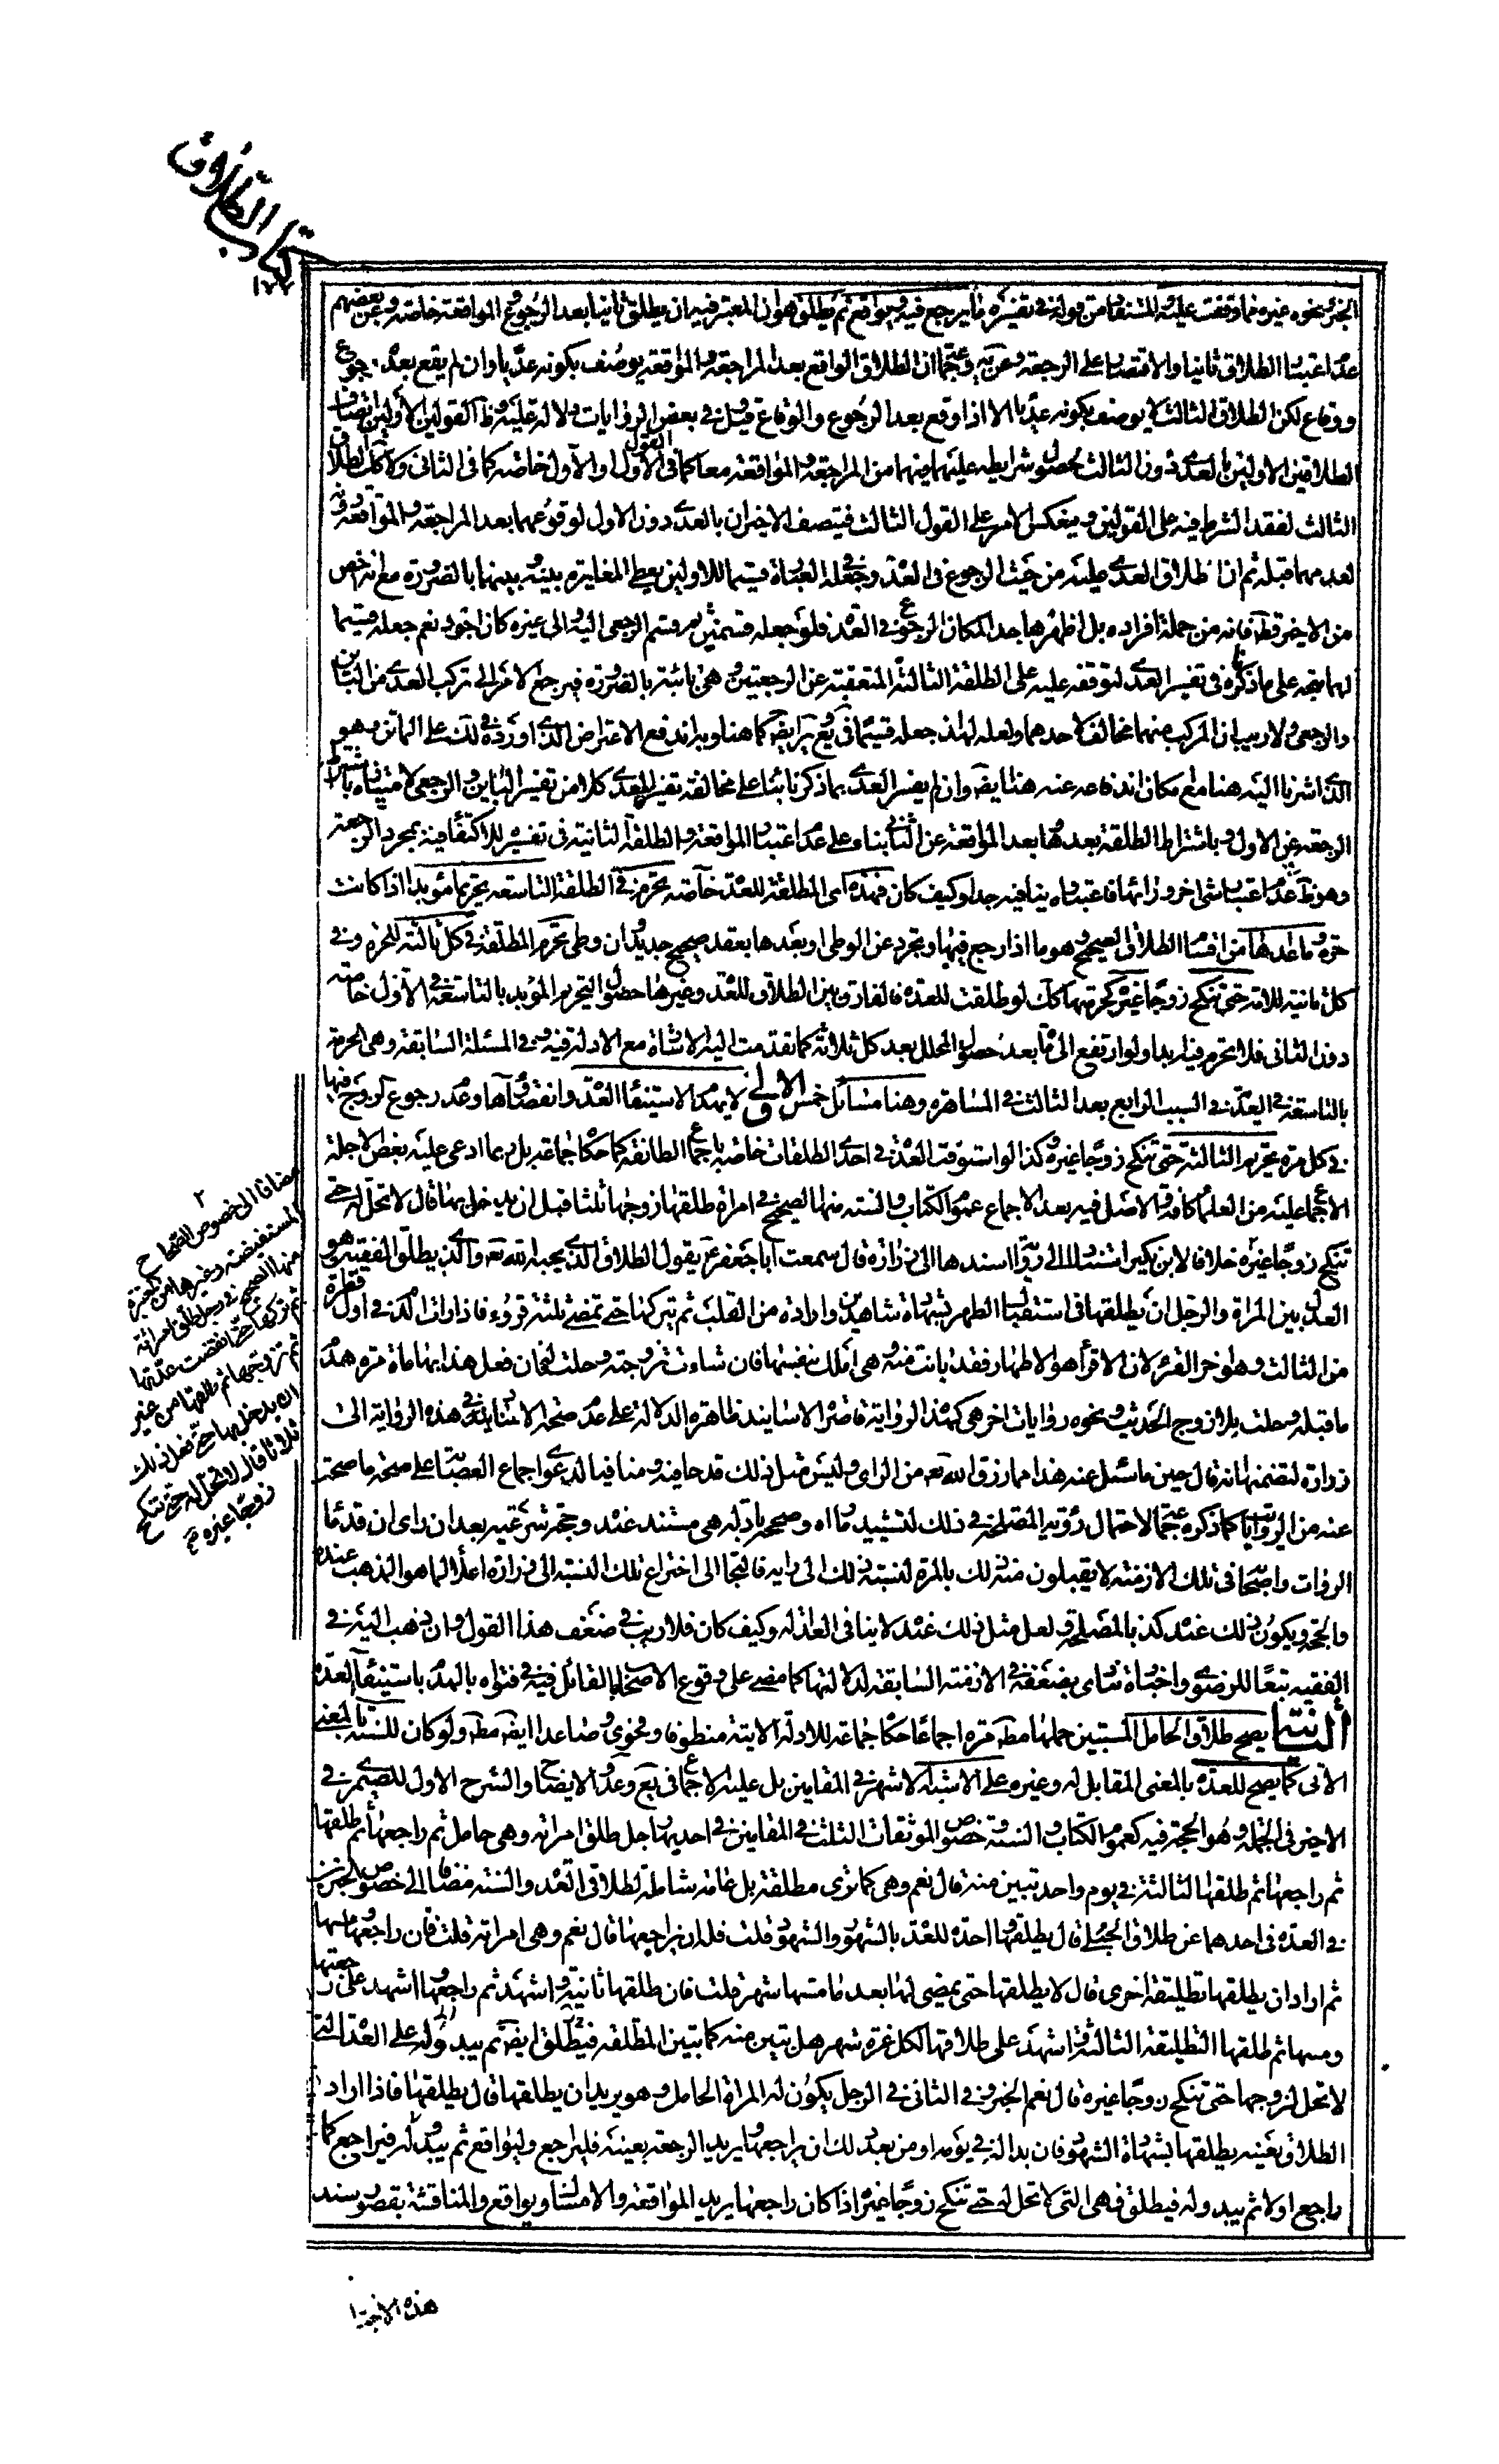 كتاب الطلاق
١٧٧
الخبر ونحوه غيره مما وقفت عليه المستفاد من قوله في تفسيره ما يرجع فيه ويواقع ثم يطلق هو ان المعتبر فيه ان يطلق ثانيا بعد الرجوع والمواقعة خاصة وعن بعضهم
عدم اعتبار الطلاق ثانيا والاقتصار على الرجعة وعن الطلاق الواقع بعد المراجعة والمواقعة يوصف بكونه عديا وان لم يقع بعده رجوع
ووقاع لكن الطلاق الثالث لا يوصف بكونه عديا الا اذا وقع بعد الرجوع والوقاع قيل وفي بعض الروايات دلالة عليه وظ القولين الأولين اتصاف
الطلاقين الاولين بالعدي دون الثالث لحصول شرايطه عليهما فيهما من المراجعة والمواقعة معا كما في القول الأول او الأول خاصة كما في الثاني ولا كك الطلاق
الثالث لفقد الشرط فيه على القولين وينعكس الامر على القول الثالث فيتصف الاخيران بالعدي دون الاول لوقوعهما بعد المراجعة والمواقعة دونه
لعدمهما قبله ثم ان طلاق العدي عليه من حيث الرجوع في العدة وجعله في العبارة قسيما للاولين يعطي المغايرة بينه وبينهما بالضرورة مع انه اخص
من الاخير قطعا فانه من جملة افراده بل اظهرها جدا لمكان الرجوع في العدة فلو جعله قسمين ثم قسم الرجعي اليه والى غيره كان اجود نعم جعله قسيما
لهما يتجه على ما ذكرنا في تفسير العدي لتوقفه عليه على الطلقة الثالثة المتعقبة عن الرجعتين وهي بائنة بالضرورة فيرجع الامر الى تركب العدي من البائن
والرجعي ولا ريب ان المركب منهما مخالف لاحدهما ولعله لهذا جعله قسيما في يع ير ايضا كما هنا وبه اندفع الاعتراض الذي اورده في لك على الماتن وهو
الذي اشرنا اليه هنا مع امكان اندفاعه عنه هنا ايضا وان لم يفسر العدي بما ذكرنا بناء على مخالفة تفسير العدي كلا من تفسير البائن والرجعي لامتيازه باشتراط
الرجعة عن الاول وباشتراط الطلقة بعدها بعد المواقعة عن الثاني بناء على عدم اعتبار المواقعة والطلقة الثانية في تفسيره للاكتفاء فيه بمجرد الرجعة
وهو ظ عدم اعتبار شيء اخر وراءها فاعتباره ينافيه جدا وكيف كان فهذه اى المطلقة للعدة خاصة تحرم في الطلقة التاسعة تحريما مؤبدا اذا كانت
حرة وما عداها من اقسام الطلاق الصحيح وهو ما اذا رجع فيها وتجرد عن الوطى او بعدها بعقد صحيح جديد وان وطى تحرم المطلقة في كل ثالثة للحرة وفي
كل ثانية للامة حتى تنكح زوجا غيره كحرمتهما كك لو طلقت للعدة فالفارق بين الطلاق للعدة وغيرها حصول التحريم المؤبد بالتاسعة في الاول خاصة
دون الثاني فلا تحرم فيه ابدا ولو ارتفع الى مائة بعد حصول المحلل بعد كل ثلاثة كما تقدمت اليه الاشارة مع الادلة فيه وفي المسئلة السابقة وهي الحرمة
بالتاسعة في العدة في السبب الرابع بعد الثالث في المصاهرة وهنا مسائل خمس الاولى لا يهدم استيفاء العدة وانقضاؤها وعدم رجوع الزوج فيها
في كل مرة تحريم الثالثة حتى تنكح زوجا غيره وكذا لو استوفت العدة في احدى الطلقات خاصة باجماع الطائفة كما حكاه جماعة بل ربما ادعى عليه بعض الاجلة
الاجماع عليه من العلماء كافة والاصل فيه بعد الاجماع عموم الكتاب والسنة منها الصحيح في امرأة طلقها زوجها ثلثا قبل ان يدخل بها قال لا تحل له حتى
تنكح زوجا غيره خلافا لابن بكير استنادا الى رواية اسندها الى زرارة قال سمعت ابا جعفر ع يقول الطلاق الذي يحبه الله تعالى والذي يطلق الفقيه وهو
العدل بين المراة والرجل ان يطلقها في استقبال الطهر بشهادة شاهدين وارادة من القلب ثم يتركها حتى تمضي ثلثة قروء فاذا رأت الدم في اول قطرة
من الثالث وهو آخر القرء لان الاقراء هو الاطهار فقد بانت منه وهي املك بنفسها فان شاءت تزوجته وحلت له فان فعل هذا بها مأة مرة هدم
ما قبله وحلت بلا زوج الحديث ونحوه روايات اخر هي كهذه الرواية قاصرة الاسانيد ظاهرة الدلالة على عدم صحة الاسناد في هذه الرواية الى
زرارة لتضمنها انه قال حين ما سئل عنه هذا مما رزق الله تعالى من الراى وليس مثل ذلك قدحا فيه ومنافيا لدعوى اجماع العصابة على صحة ما صحت
عنه من الروايات كما ذكره جماعة لاحتمال رؤية المصلحة في ذلك لتشييد ما راه وصححه بادلة هي مستند عنده وحجة شرعية بعد ان راى ان قدماء
الروات واصحابنا في تلك الازمنة لا يقبلون منه ذلك بالمرة لنسبته ذلك الى رايه فالتجأ الى اختراع تلك النسبة الى زرارة اعلاءا لما هو المذهب عنده
والحجة ويكون ذلك عنده كذبا لمصلحة ولعل مثل ذلك عنده لا ينافي العدالة وكيف كان فلا ريب في ضعف هذا القول وان ذهب اليه في
الفقيه تبعا للرضوي واخباره تنادي بضعفه في الازمنة السابقة لدلالتها كما مضى على وقوع الاصحاب القائل فيه في فتواه بالهدم باستيفاء العدة
الثانية يصح طلاق الحامل المستبين حملها مطلقا مرة اجماعا حكاه جماعة للادلة الاتية منطوقا وفحوى وصاعدا ايضا مطلقا ولو كان للسنة بالمعنى
الآتي كما يصح للعدة بالمعنى المقابل له وغيره على الاشبه الاشهر في المقامين بل عليه الاجماع في يع وعد والايضاح والشرح الاول للصيمري في
الاخير في الجملة وهو الحجة فيه كعموم الكتاب والسنة وخصوص الموثقات الثلث في المقامين في احديها رجل طلق امراته وهي حامل ثم راجعها ثم طلقها
ثم راجعها ثم طلقها الثالثة في يوم واحد تبين منه قال نعم وهي كما ترى مطلقة بل عامة شاملة لطلاقي العدة والسنة مضافا الى خصوص الخبرين
في العدة في احدهما عن طلاق الحبلى قال يطلقها واحدة للعدة بالشهور والشهود قلت فله ان يراجعها قال نعم وهي امراته قلت فان راجعها ومسها
ثم اراد ان يطلقها تطليقة اخرى قال لا يطلقها حتى يمضي لها بعد ما مسها شهر قلت فان طلقها ثانية واشهد ثم راجعها واشهد على رجعتها
ومسها ثم طلقها التطليقة الثالثة واشهد على طلاقها لكل غرة شهر هل تبين منه كما تبين المطلقة
لا تحل لزوجها حتى تنكح زوجا غيره قال نعم الخبر وفي الثاني في الرجل يكون له المراة الحامل وهو يريد ان يطلقها قال يطلقها فاذا اراد
الطلاق بعينه يطلقها بشهادة الشهود فان بدا له في يومه او من بعد ذلك ان يراجعها يريد الرجعة بعينه فليراجع وليواقع ثم يبدو له فيراجع كما
راجع اولا ثم يبدو له فيطلق فهي التي لا تحل له حتى تنكح زوجا غيره اذا كان راجعها يريد المواقعة والامساك ويواقع والمناقشة بقصور سند
مضافا الى خصوص الصحاح
المستفيضة وغيرها من المعتبرة
منها الصحيح في رجل طلق امراته
ثم تركها حتى انقضت عدتها
ثم تزوجها ثم طلقها من غير
ان يدخل بها حتى فعل ذلك
ثلاثا قال لا تحل له حتى تنكح
زوجا غيره
هذه الاخبار